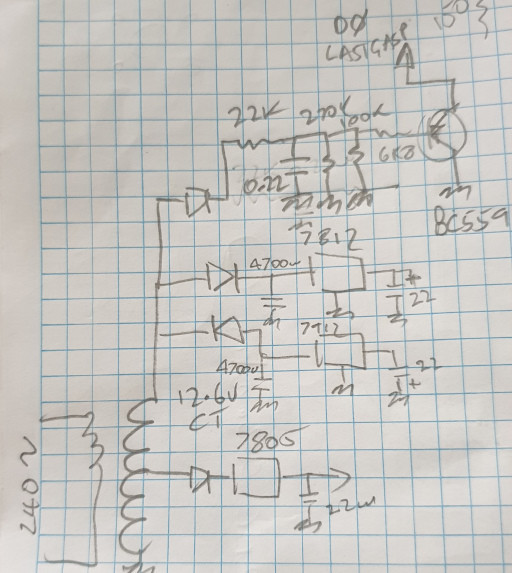 00
LASTGASP
150
22K
270K
100K
6K8
0.22
BC559
7812
4700u
22
7912
4700u
22
12.6V
CT
240~
7805
22u